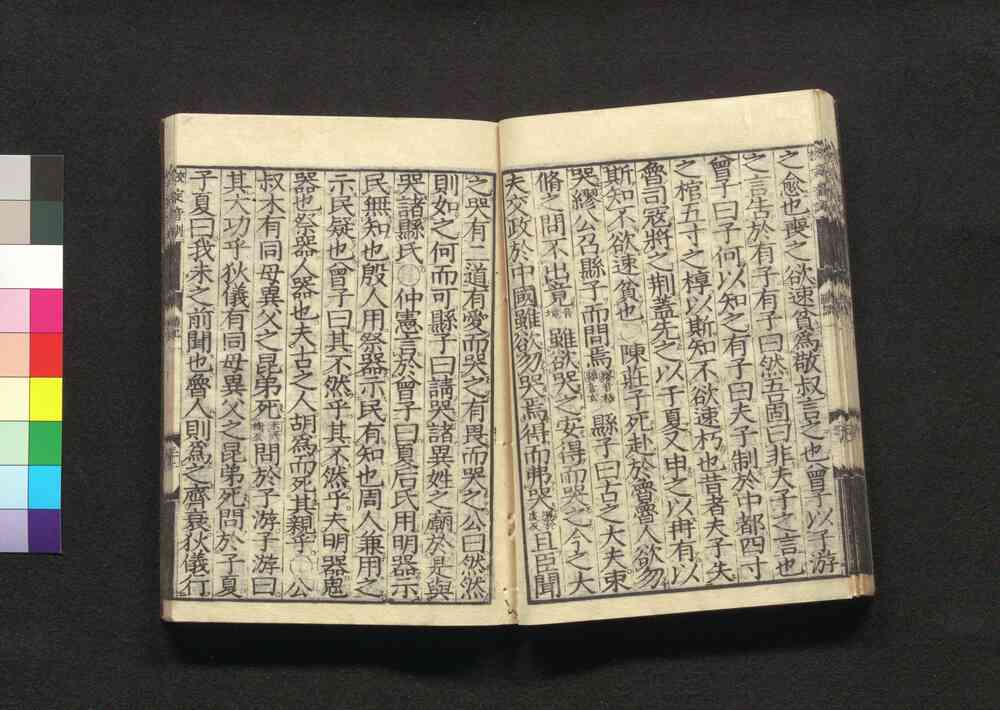 之愈也喪之欲速貧爲敬叔言之也曾子以子游
之言告於有子有子曰然吾固曰非夫子之言也
曾子曰子何以知之有子曰夫子制於中都四寸
之棺五寸之椁以斯知不欲速朽也昔者夫子失
魯司寇將之荊蓋先之以子夏又申之以冉有以
斯知不欲速貧也 陳莊子死赴於魯魯人欲勿
哭繆公召縣子而問焉 縣子曰古之大夫束
脩之問不出竟 雖欲哭之安得而哭之今之大
夫交政於中國雖欲勿哭焉得而弗哭 且臣聞
之哭有二道有愛而哭之有畏而哭之公曰然然
則如之何而可縣子曰請哭諸異姓之廟於是與
哭諸縣氏○仲憲言於曾子曰夏后氏用明器示
民無知也殷人用祭器示民有知也周人兼用之
示民疑也曾子曰其不然乎其不然乎夫明器鬼
器也祭器人器也夫古之人胡爲而死其親乎○公
叔木有同母異父之昆弟死 問於子游子游曰
其大功乎狄儀有同母異父之昆弟死問於子夏
子夏曰我未之前聞也魯人則爲之齊衰狄儀行